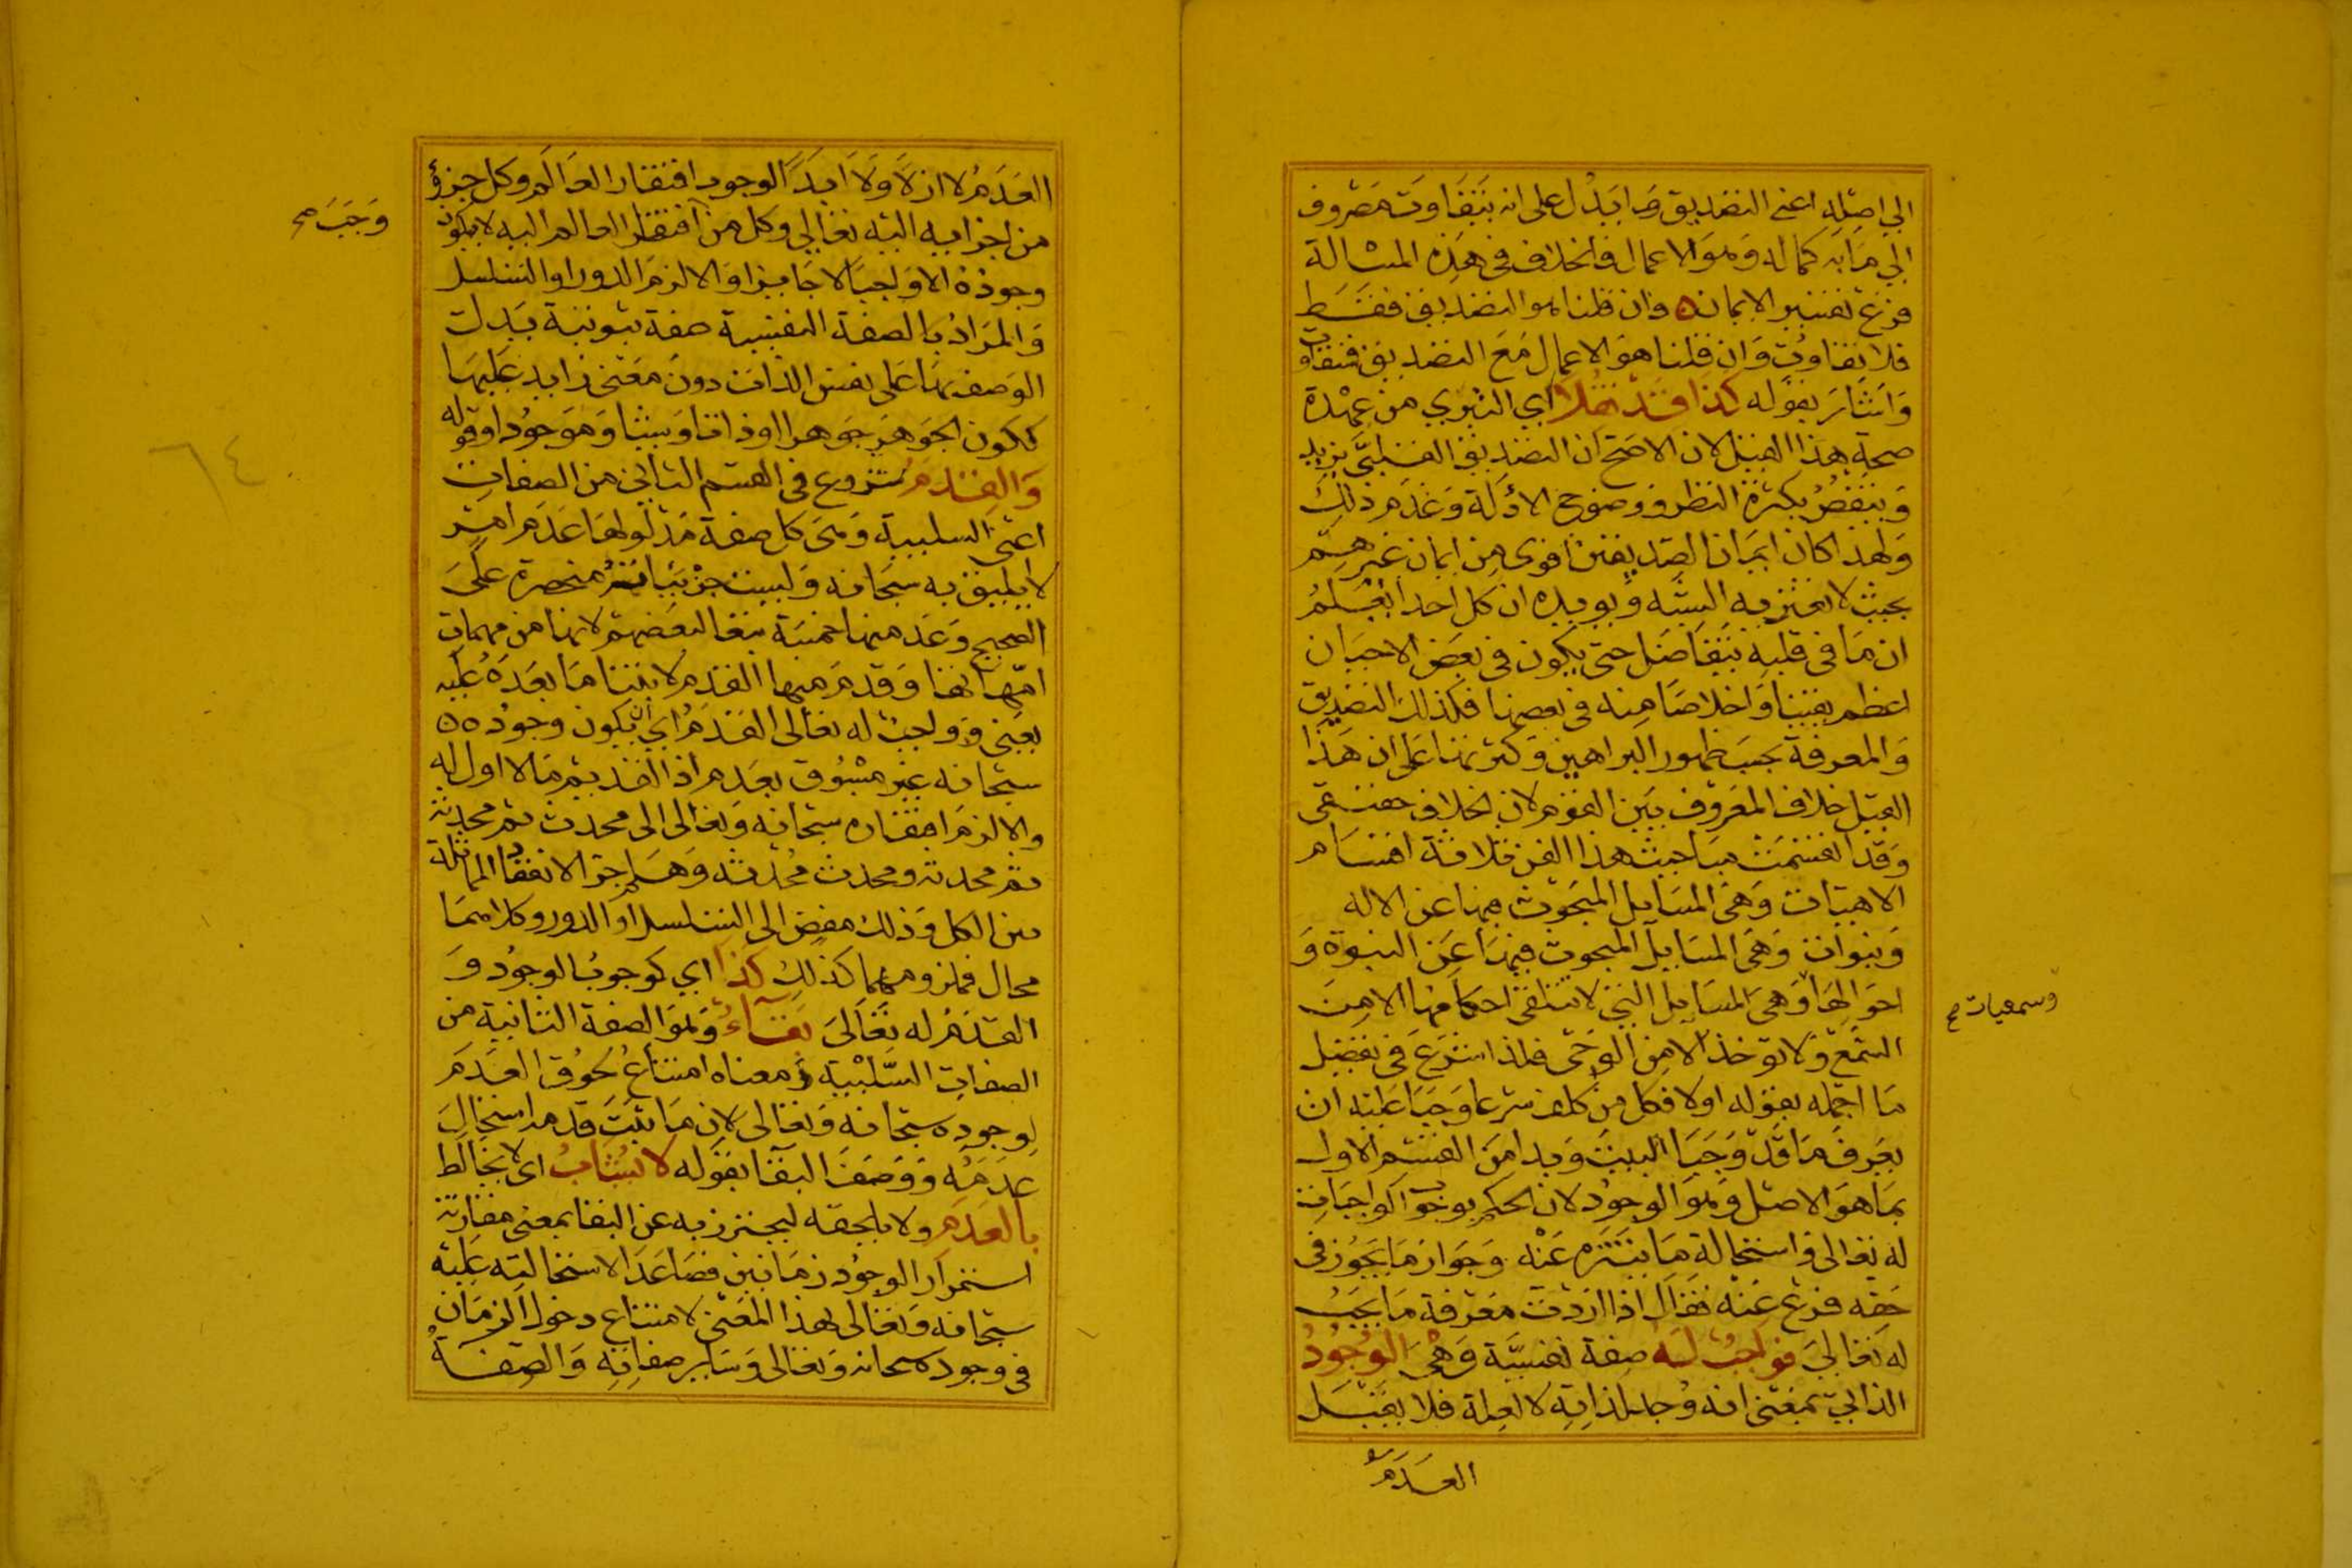 الي اصله اعني التصديق وما يدل على انه يتفاوت مصروف
الي ما به كماله وهو الاعمال فالخلاف في هذه المسالة
فرع تفسير الايمان وان قلنا هو التصديق فقط
فلا تفاوت وان قلنا هو الاعمال مع التصديق فتفاوت
واشار بقوله كذا قد نقلا اي التبري من عهدة
صحة هذا القيل لان الاصح ان التصديق القلبي يزيد
وينقص بكثرة النظر ووضوح الادلة وعدم ذلك
ولهذا كان ايمان الصديقين اقوى من ايمان غيرهم
بحيث لا تعتريه الشبه ويويده ان كل احد يعلم
ان ما في قلبه يتفاضل حتى يكون في بعض الاحيان
اعظم يقينا واخلاصا منه في بعضها فكذلك التصديق
والمعرفة بحسب ظهور البراهين وكثرتها على ان هذا
القيل خلاف المعروف بين القوم لان الخلاف حقيقي
وقد انقسمت مباحث هذا الفن ثلاثة اقسام
الاهيات وهي المسايل المبحوث فيها عن الاله
ونبوات وهي المسايل المبحوث فيها عن النبوة و
احوالها وهي المسايل التي لا تتلقى احكامها الا من
وسمعيات صح
السمع ولا توخذ الا من الوحي فلذا شرع في تفصيل
ما اجمله بقوله اولا فكل من كلف شرعا وجبا عليه ان
يعرف ما قد وجبا البيت وبدا من القسم الاول
بما هو الاصل وهو الوجود لان الحكم بوجوب الواجبات
له تعالى واستحالة ما يتنزه عنه وجواز ما يجوز في
حقه فرع عنه فقال اذا اردت معرفة ما يجب
له تعالى فواجب له صفة نفسية وهي الوجود
الذاتي بمعنى انه وجد لذاته لا لعلة فلا يقبل
العدم
العدم لا ازلا ولا ابدا لوجوب افتقار العالم وكل جزؤ
من اجزايه اليه تعالي وكل من افتقر العالم اليه لا يكون
وجب صح
وجوده الا واجبا لا جايزا والا لزم الدور او التسلسل
والمراد بالصفة النفسية صفة ثبوتية يدل
الوصف بها على نفس الذات دون معنى زايد عليها
ككون الجوهر جوهرا او ذاتا وشيا وموجودا وقوله
والقدم شروع في القسم الثاني من الصفات
اعني السلبية وهي كل صفة مدلولها عدم امر
لا يليق به سبحانه وليست جزئياته منحصرة على
الصحيح وعد منها خمسة تبعا لبعضهم لانها من مهمات
امهاتها وقدم منها القدم لابتنا ما بعده عليه
يعني وواجب له تعالى القدم اي ان يكون وجوده
سبحانه غير مسبوق بعدم اذ القديم ما لا اول له
والا لزم افتقاره سبحانه وتعالى الى محدث ثم محدثه
ثم محدثه ومحدث محدثه وهلم جرا لانعقاد المماثلة
بين الكل وذلك مفض الى التسلسل او الدور وكلاهما
محال فملزومهما كذلك كذا اي كوجوب الوجود و
القدم له تعالى بقاء وهو الصفة الثانية من
الصفات السلبية ومعناه امتناع لحوق العدم
لوجوده سبحانه وتعالى لان ما ثبت قدمه استحال
عدمه ووصف البقا بقوله لا يشاب اي لا يخالط
بالعدم ولا يلحقه ليحترز به عن البقا بمعنى مقارنة
استمرار الوجود زمانين فصاعدا لاستحالته عليه
سبحانه وتعالى بهذا المعنى لامتناع دخول الزمان
في وجوده سبحانه وتعالى وساير صفاته والصفة
٦٤